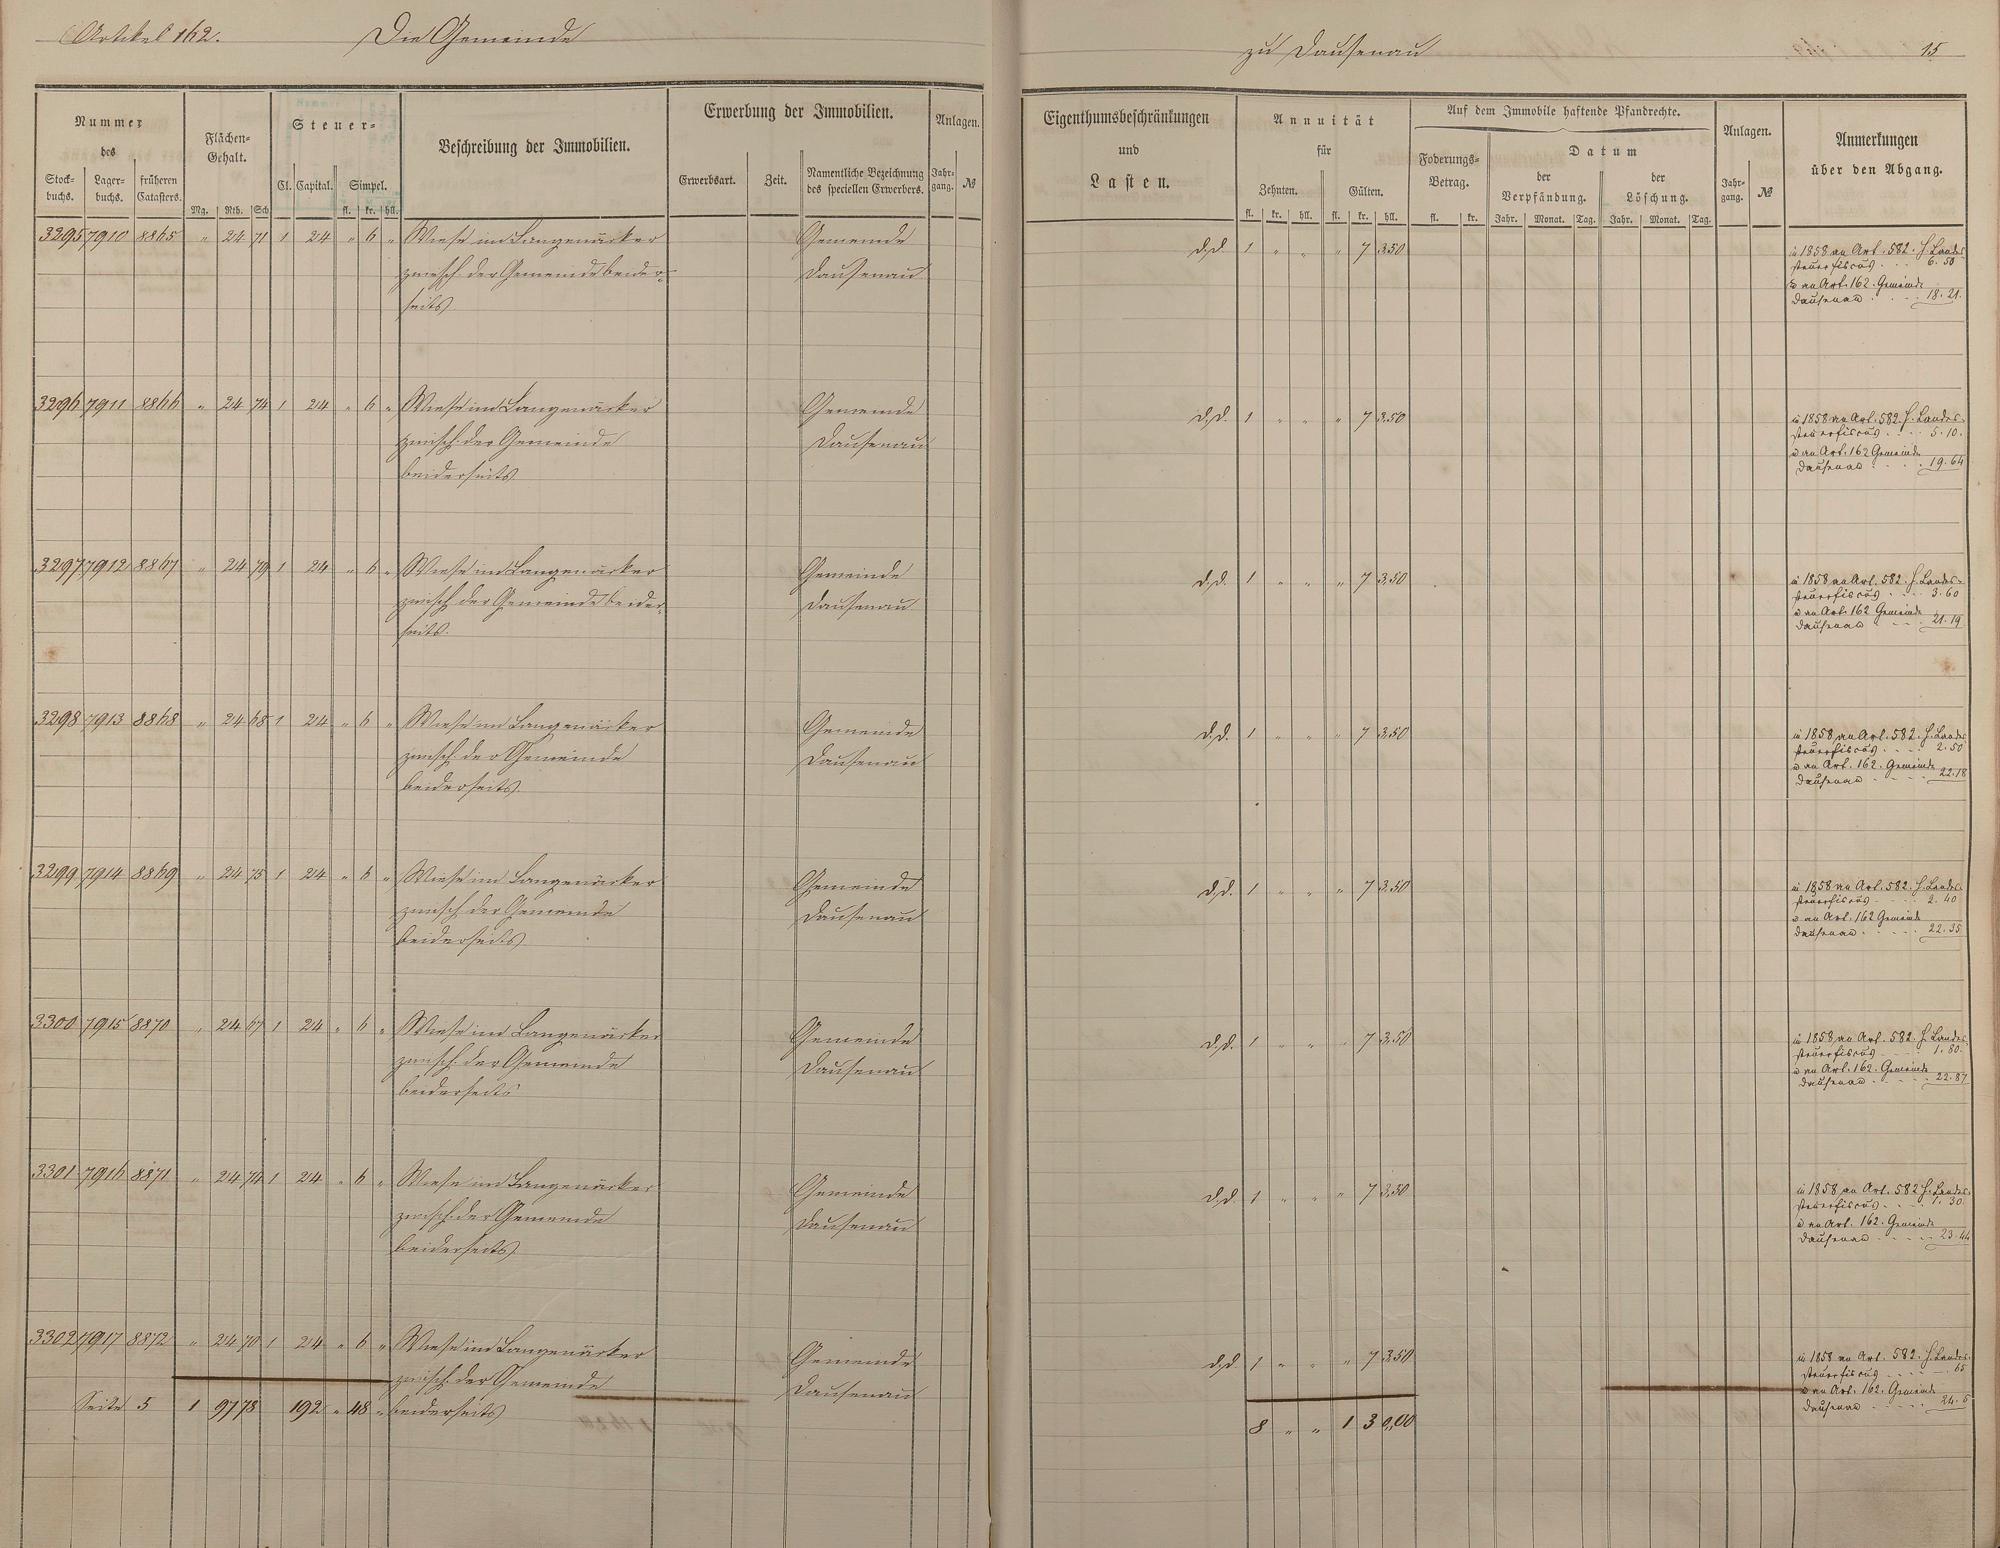 Artikel 162. Die Gemeinde zu Dausenau 15
Nummer des
Stock-buchs. Lager-buchs. früheren Catasters.
Flächen-Gehalt.
Mg. Rth. Sch
Steuer-
Cl. Capital. Simpel.
fl. kr. hll.
Beschreibung der Immobilien.
Erwerbung der Immobilien.
Erwerbsart. Zeit. Namentliche Bezeichnung des speciellen Erwerbers.
Anlagen.
Jahr-gang. №
Eigenthumsbeschränkungen
und
Lasten.
Annuität
für
Zehnten. Gülten.
fl. kr. hll. fl. kr. hll.
Auf dem Immobile haftende Pfandrechte.
Foderungs-Betrag.
fl. kr.
Datum
der Verpfändung. der Löschung.
Jahr. Monat. Tag. Jahr. Monat. Tag.
Anlagen.
Jahr-gang. №
Anmerkungen
über den Abgang.
3295 7910 8865 " 24 71 1 24 " 6 " Wiese im Langenäcker Gemeinde d.d. 1 " " " 7 3,50 in 1858 an Art. 582. H. Landes-
zwisch der Gemeinde beider- Dausenau steuerfiscus 6. 50
seits u an Art. 162. Gemeinde
Dausenau 18. 21.
3296 7911 8866 " 24 74 1 24 " 6 " Wiese im Langenäcker Gemeinde d.d. 1 " " " 7 3,50 in 1858 an Art. 582. H. Landes-
zwisch. der Gemeinde Dausenau steuerfiscus 5. 10.
beiderseits u an Art. 162 Gemeinde
Dausenau 19. 64
3297 7912 8867 " 24 79 1 24 " 6 " Wiese im Langenäcker Gemeinde d.d. 1 " " " 7 3,50 in 1858 an Art. 582. H. Landes-
zwisch der Gemeinde beider- Dausenau steuerfiscus 3. 60
seits. u an Art. 162 Gemeinde
Dausenau 21. 19
3298 7913 8868 " 24 68 1 24 " 6 " Wiese im Langenäcker Gemeinde d.d. 1 " " " 7 3,50 in 1858 an Art. 582. H. Landes
zwisch. der Gemeinde Dausenau steuerfiscus 2. 50
beiderseits u an Art. 162. Gemeinde
Dausenau 22. 18
3299 7914 8869 " 24 75 1 24 " 6 " Wiese im Langenäcker Gemeinde d.d. 1 " " " 7 3,50 in 1858 an Art. 582. H. Landes-
zwisch der Gemeinde Dausenau steuerfiscus 2. 40
beiderseits u an Art. 162 Gemeinde
Dausenau 22. 35
3300 7915 8870 " 24 67 1 24 " 6 " Wiese im Langenäcker Gemeinde d.d. 1 " " " 7 3,50 in 1858 an Art. 582. H. Landes-
zwisch. der Gemeinde Dausenau steuerfiscus 1. 80.
beiderseits u an Art. 162. Gemeinde
Dausenau 22. 87
3301 7916 8871 " 24 74 1 24 " 6 " Wiese im Langenäcker Gemeinde d.d. 1 " " " 7 3,50 in 1858 an Art. 582 H. Landes-
zwisch. der Gemeinde Dausenau steuerfiscus 1. 30.
beiderseits u an Art. 162. Gemeinde
Dausenau 23. 44
3302 7917 8872 " 24 70 1 24 " 6 " Wiese im Langenäcker Gemeinde d.d. 1 " " " 7 3,50 in 1858 an Art. 582. H. Landes-
zwisch. der Gemeinde Dausenau steuerfiscus 65
beiderseits u an Art. 162. Gemeinde
Dausenau 24. 5
Seite 5 1 97 78 192 " 48 " 8 " " 1 3 0,00